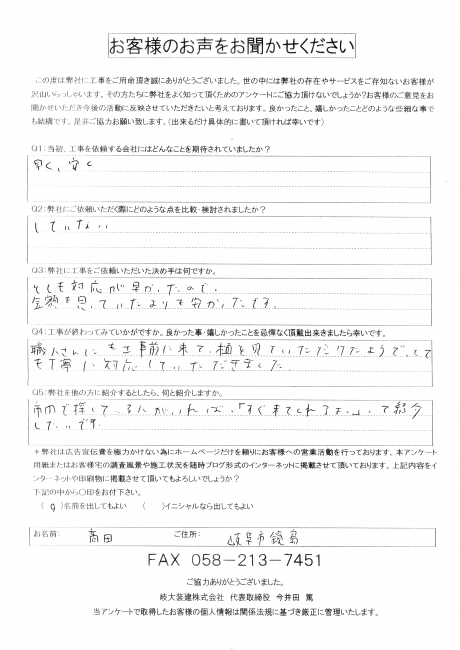 お客様のお声をお聞かせください
この度は弊社に工事をご用命頂き誠にありがとうございました。世の中には弊社の存在やサービスをご存知ないお客様が
沢山いらっしゃいます。その方たちに弊社をよく知って頂くためのアンケートにご協力頂けないでしょうか?お客様のご意見をお
聞かせいただき今後の活動に反映させていただきたいと考えております。良かったこと、嬉しかったことどのような些細な事で
も結構です。是非ご協力お願い致します。(出来るだけ具体的に書いて頂ければ幸いです)
Q1:当初、工事を依頼する会社にはどんなことを期待されていましたか?
早く、安く
Q2:弊社にご依頼いただく際にどのような点を比較・検討されましたか?
していない
Q3:弊社に工事をご依頼いただいた決め手は何ですか。
とても対応が早かったので。
金額も思っていたよりも安かったです。
Q4:工事が終わってみていかがですか。良かった事・嬉しかったことを忌憚なく頂戴出来ましたら幸いです。
職人さんにも工事前に来て、植を見ていただけたようで、とて
も丁寧に対応していただきました
Q5:弊社を他の方に紹介するとしたら、何と紹介しますか。
市内で探している人がいれば、「すぐ来てくれるよ。」って紹介
したいです。
*弊社は広告宣伝費を極力かけない為にホームページだけを頼りにお客様への営業活動を行っております。本アンケート
用紙またはお客様宅の調査風景や施工状況を随時ブログ形式のインターネットに掲載させて頂いております。上記内容をイ
ンターネットや印刷物に掲載させて頂いてもよろしいでしょうか?
下記の中から〇印をお付下さい。
( 〇 )名前を出してもよい ( )イニシャルなら出してもよい
お名前: 高田 ご住所: 岐阜市鏡島
FAX 058-213-7451
ご協力ありがとうございました。
岐大装建株式会社 代表取締役 今井田 篤
当アンケートで取得したお客様の個人情報は関係法規に基づき厳正に管理いたします。